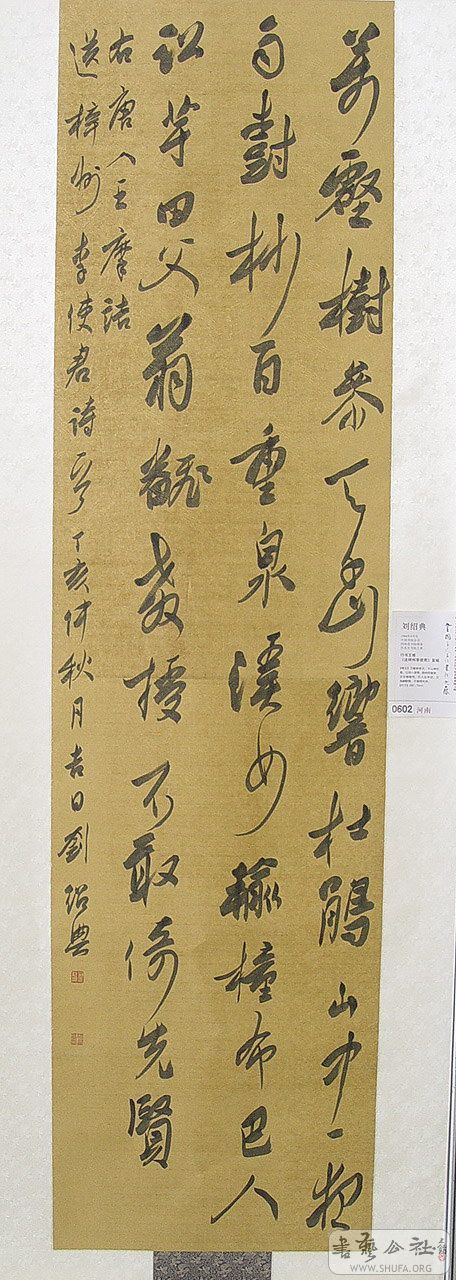 萬壑樹參天千山響杜鵑山中一夜
雨樹杪百重泉漢女輸橦布巴人
訟芋田文翁翻教授不敢倚先賢
右唐人王摩詰
送梓州李使君詩一首丁亥仲秋月吉日劉紹典
刘绍典
0602 河南
書藝公社
WWW.SHUFA.ORG